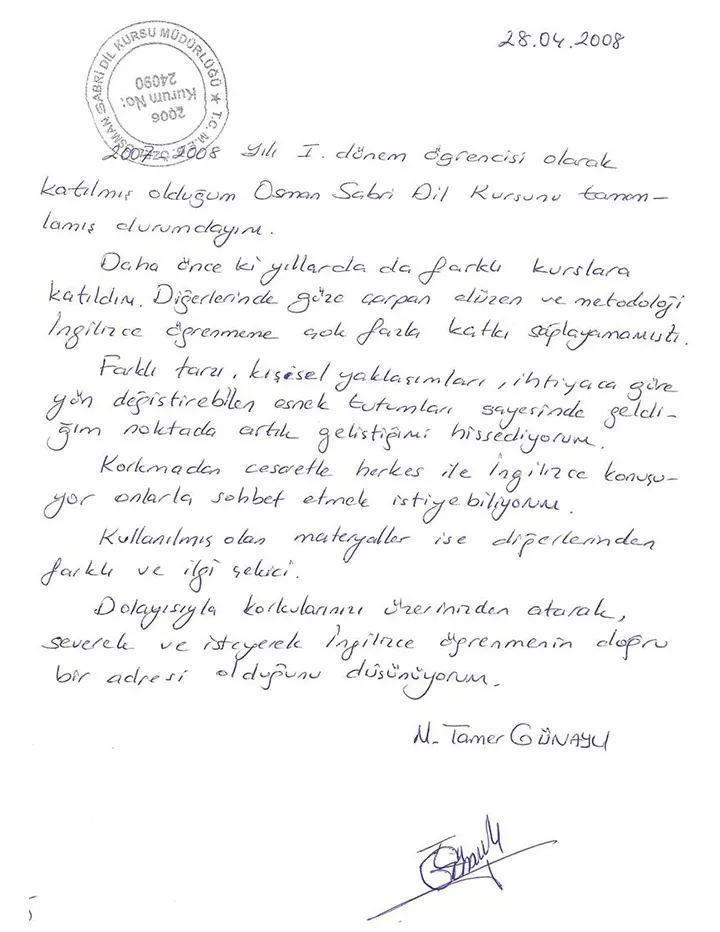 28.04.2008
OSMAN SABRİ DİL KURSU MÜDÜRLÜĞÜ ★ T.C. M.E.B.
2006
Kurum No:
24090
2007-2008 Yılı I. dönem öğrencisi olarak
katılmış olduğum Osman Sabri Dil Kursunu tamam-
lamış durumdayım.
Daha önce ki yıllarda da farklı kurslara
katıldım. Diğerlerinde göze çarpan düzen ve metodoloji
İngilizce öğrenmeme çok fazla katkı sağlayamamıştı.
Farklı tarzı, kişisel yaklaşımları, ihtiyaca göre
yön değiştirebilen esnek tutumları sayesinde geldi-
ğim noktada artık geliştiğimi hissediyorum.
Korkmadan cesaretle herkes ile İngilizce konuşu-
yor onlarla sohbet etmek istiyebiliyorum.
Kullanılmış olan materyaller ise diğerlerinden
farklı ve ilgi çekici.
Dolayısıyla korkularınızı üzerinizden atarak,
severek ve isteyerek İngilizce öğrenmenin doğru
bir adresi olduğunu düşünüyorum.
M. Tamer GÜNAYLI